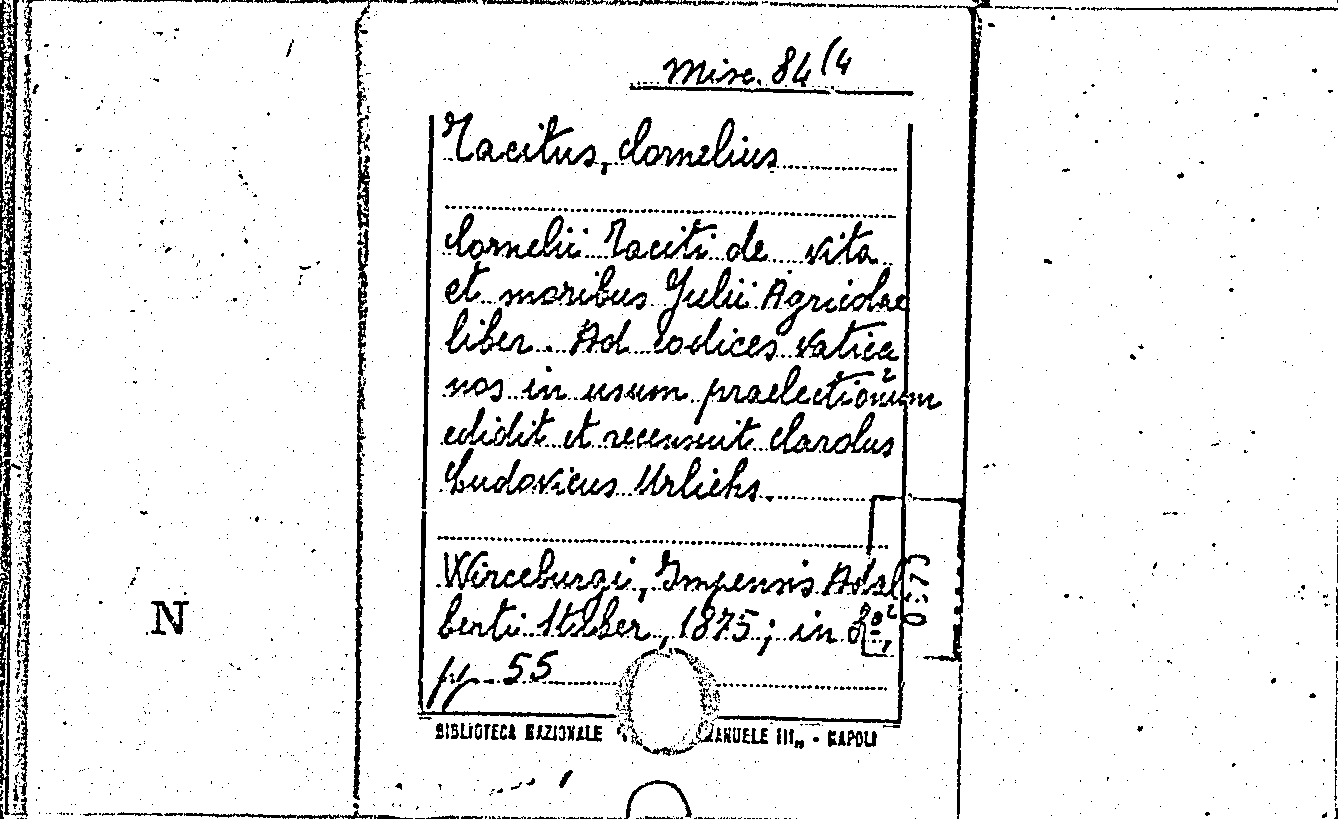 Misc. 84/4
Tacitus, Cornelius
Cornelii Taciti de vita
et moribus Julii Agricolae
liber. Ad codices vatica
nos in usum praelectionum
edidit et recensuit Carolus
Ludovicus Urlichs.
Wirceburgi, Impensis Adal
berti Stuber, 1875; in 8º,
pp. 55
N
BIBLIOTECA NAZIONALE ANUELE III„ - NAPOLI